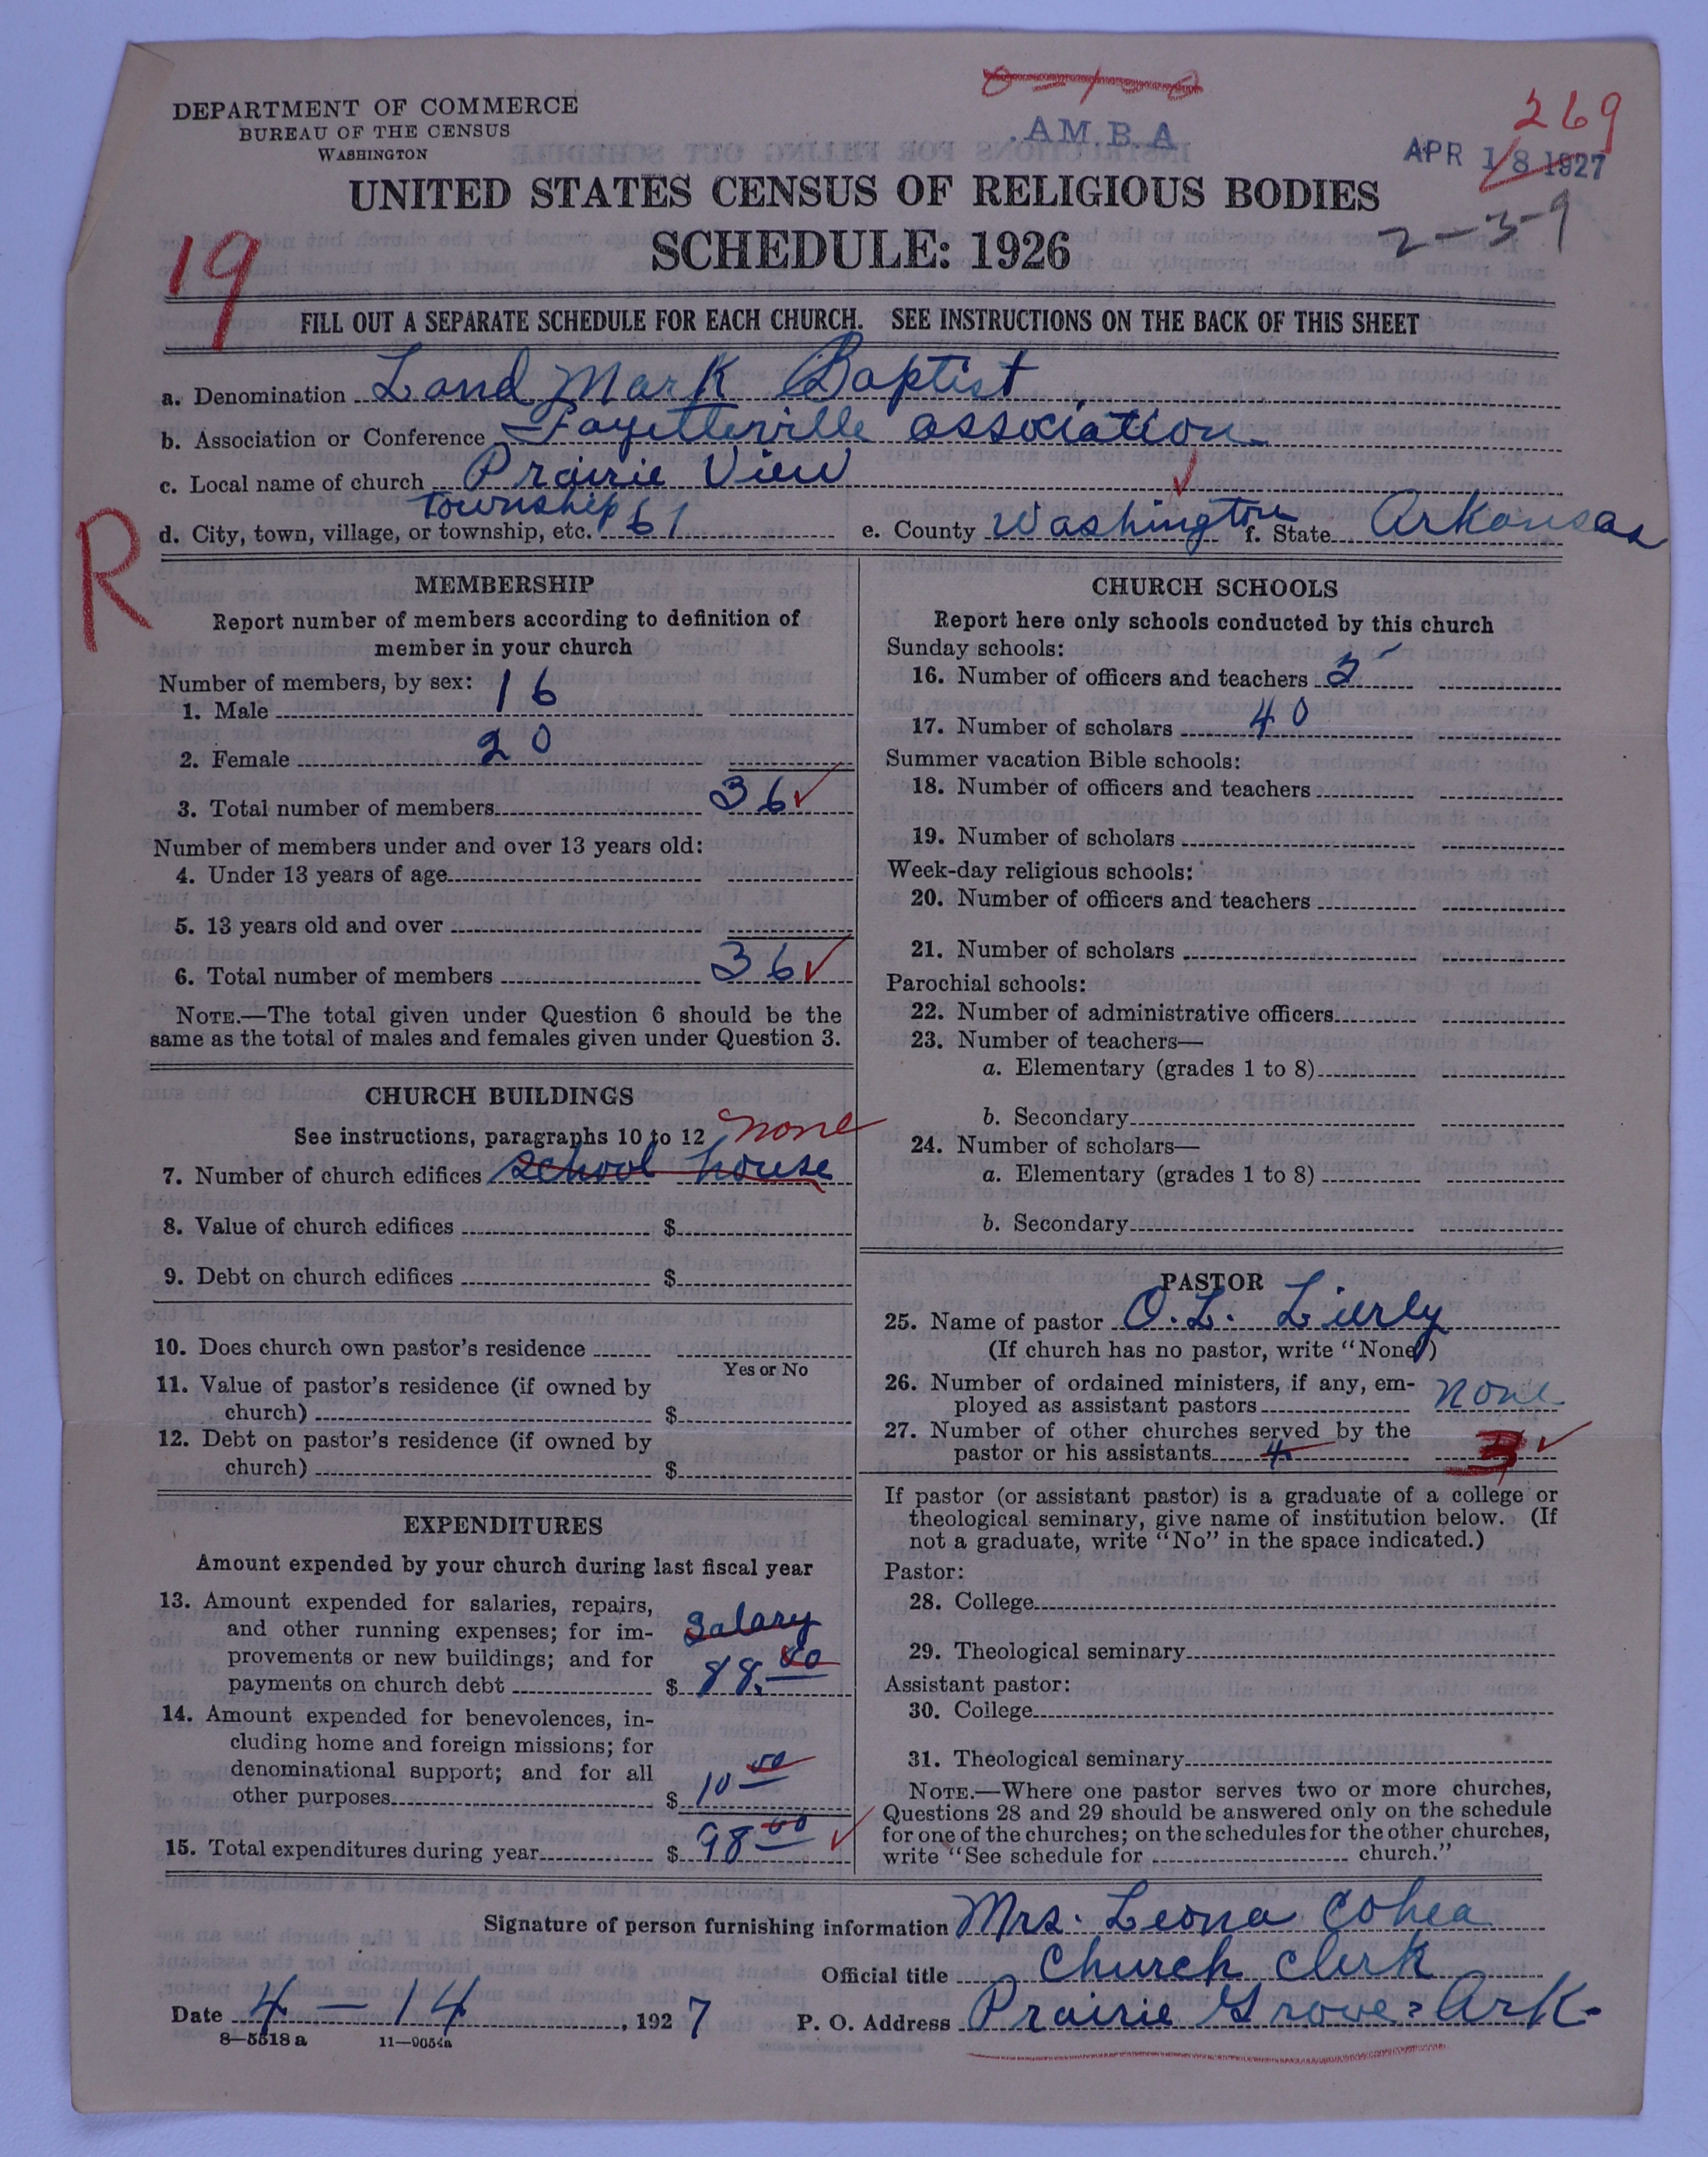 DEPARTMENT OF COMMERCE
BUREAU OF THE CENSUS
WASHINGTON
AM.B.A
269
APR 18 1927
2-3-9
UNITED STATES CENSUS OF RELIGIOUS BODIES
SCHEDULE: 1926
19
FILL OUT A SEPARATE SCHEDULE FOR EACH CHURCH. SEE INSTRUCTIONS ON THE BACK OF THIS SHEET
a. Denomination Land Mark Baptist
b. Association or Conference Fayetteville association
c. Local name of church Prairie View
d. City, town, village, or township, etc. township 61 e. County Washington f. State Arkansas
R
MEMBERSHIP
Report number of members according to definition of
member in your church
Number of members, by sex:
1. Male 16
2. Female 20
3. Total number of members 36
Number of members under and over 13 years old:
4. Under 13 years of age
5. 13 years old and over
6. Total number of members 36
NOTE.—The total given under Question 6 should be the
same as the total of males and females given under Question 3.
CHURCH BUILDINGS
See instructions, paragraphs 10 to 12 none
7. Number of church edifices school house
8. Value of church edifices $
9. Debt on church edifices $
10. Does church own pastor's residence
Yes or No
11. Value of pastor's residence (if owned by
church) $
12. Debt on pastor's residence (if owned by
church) $
EXPENDITURES
Amount expended by your church during last fiscal year
13. Amount expended for salaries, repairs,
and other running expenses; for im-
provements or new buildings; and for
payments on church debt $ Salary 88.00
14. Amount expended for benevolences, in-
cluding home and foreign missions; for
denominational support; and for all
other purposes $ 10 00
15. Total expenditures during year $ 98 00
CHURCH SCHOOLS
Report here only schools conducted by this church
Sunday schools:
16. Number of officers and teachers
17. Number of scholars 40
Summer vacation Bible schools:
18. Number of officers and teachers
19. Number of scholars
Week-day religious schools:
20. Number of officers and teachers
21. Number of scholars
Parochial schools:
22. Number of administrative officers
23. Number of teachers—
a. Elementary (grades 1 to 8)
b. Secondary
24. Number of scholars—
a. Elementary (grades 1 to 8)
b. Secondary
PASTOR
25. Name of pastor O. L. Lierly
(If church has no pastor, write "None")
26. Number of ordained ministers, if any, em-
ployed as assistant pastors none
27. Number of other churches served by the
pastor or his assistants 4 3
If pastor (or assistant pastor) is a graduate of a college or
theological seminary, give name of institution below. (If
not a graduate, write "No" in the space indicated.)
Pastor:
28. College
29. Theological seminary
Assistant pastor:
30. College
31. Theological seminary
NOTE.—Where one pastor serves two or more churches,
Questions 28 and 29 should be answered only on the schedule
for one of the churches; on the schedules for the other churches,
write "See schedule for church."
Signature of person furnishing information Mrs. Leona Cohea
Official title Church Clerk
Date 4-14, 1927 P. O. Address Prairie Grove, Ark.
8—5518 a 11—9054a